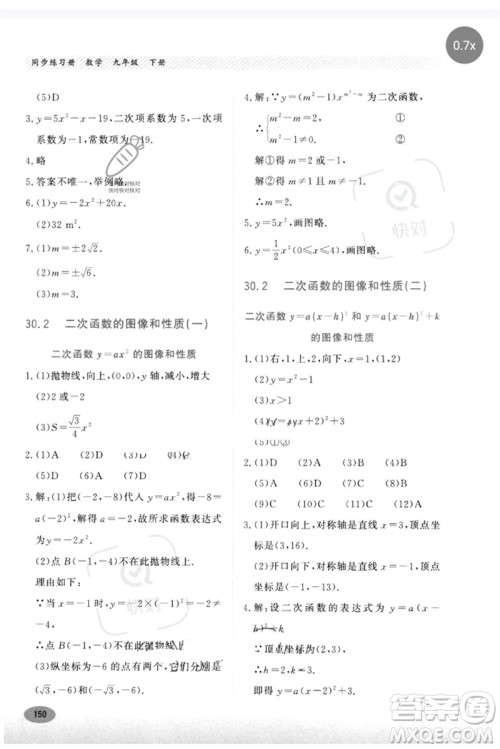 0.7x
同步练习册 数学 九年级 下册
(5)D
3. y=5x²-x-19,二次项系数为5,一次项系数为-1,常数项为-19.
4. 略
5. 答案不唯一,举例略.
6. (1)y=-2x²+20x.
(2)32 m².
7. (1)m=±2√5.
(2)m=±√6.
(3)D.
30.2 二次函数的图像和性质(一)
二次函数 y=ax² 的图像和性质
1. (1)抛物线,向上,(0,0),y轴,减小,增大
(2)2 或-2
(3)S=√3/4 x²
2. (1)A (2)D (3)A (4)A
(5)D
3. 解:(1)把(-2,-8)代入 y=ax²,得-8=
a(-2)²,解得a=-2,故所求函数表达式
为y=-2x².
(2)点 B(-1,-4)不在此抛物线上.
理由如下:
∵ 当 x=-1 时,y=-2×(-1)²=-2
≠-4,
∴ 点 B(-1,-4)不在此抛物线上.
(3)纵坐标为-6的点有两个,它们分别是
(√3,-6)与(-√3,-6).
150
4. 解:∵ y=(m²-m)x^(m²-2) 为二次函数,
∴ m²-2=2, ①
m²-m≠0. ②
解①得 m=2 或 m=-2.
解②得 m≠0 且 m≠1.
∴ m=2 或 m=-2.
5. (1)y=5x²,画图略. (2)相同.
6. y=1/2 x²(0≤x≤4),画图略.
30.2 二次函数的图像和性质(二)
二次函数 y=a(x-h)² 和 y=a(x-h)²+k
的图像和性质
1. (1)右,1,2,上,向下,x=1,(1,2)
(2)y=-2(x-1)²
(3)x>1
2. (1)D (2)A (3)A (4)B (5)D
(6)D (7)B (8)C (9)C
(10)C (11)D (12)A
3. (1)开口向上,对称轴是直线 x=3,顶点坐
标是(3,16).
(2)开口向下,对称轴是直线 x=-2,顶点
坐标是(-2,-1).
4. 解:设二次函数的表达式为 y=a(x-h)²
+k.
∵ 顶点坐标为(1,-6),
∴ h=1,k=-6.
即得 y=a(x-1)²-6.
快对
答案圈
MXQE.COM